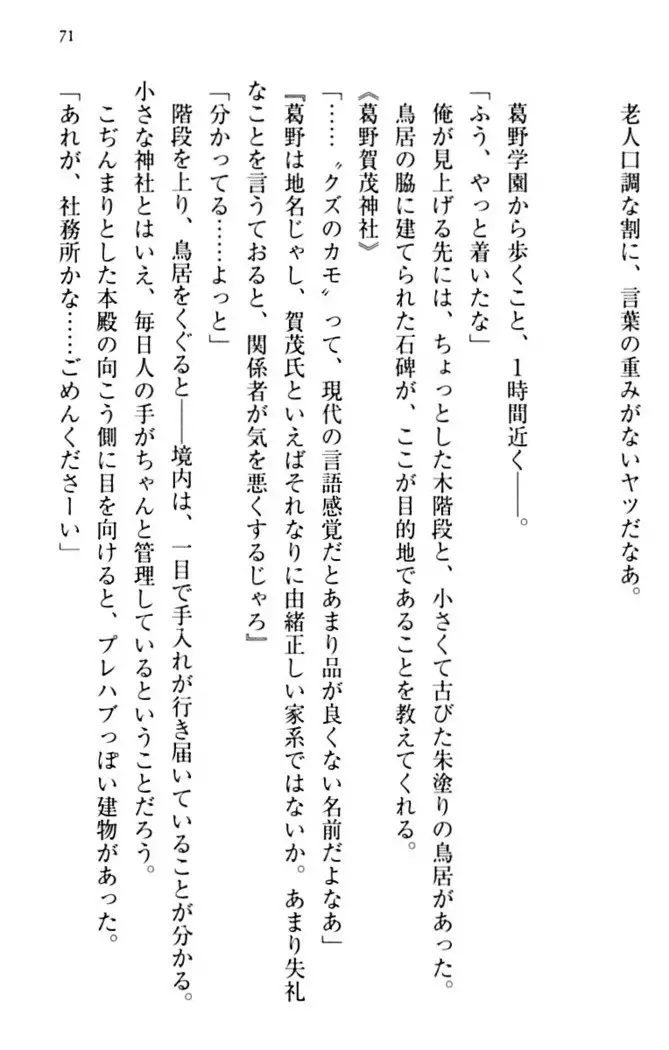 71
老人口調な割に、言葉の重みがないヤツだなあ。
葛野学園から歩くこと、1時間近く――。
「ふう、やっと着いたな」
俺が見上げる先には、ちょっとした木階段と、小さくて古びた朱塗りの鳥居があった。
鳥居の脇に建てられた石碑が、ここが目的地であることを教えてくれる。
《葛野賀茂神社》
「……〝クズのカモ〟って、現代の言語感覚だとあまり品が良くない名前だよなあ」
『葛野は地名じゃし、賀茂氏といえばそれなりに由緒正しい家系ではないか。あまり失礼
なことを言うておると、関係者が気を悪くするじゃろ』
「分かってる……よっと」
階段を上り、鳥居をくぐると――境内は、一目で手入れが行き届いていることが分かる。
小さな神社とはいえ、毎日人の手がちゃんと管理しているということだろう。
こぢんまりとした本殿の向こう側に目を向けると、プレハブっぽい建物があった。
「あれが、社務所かな……ごめんくださーい」